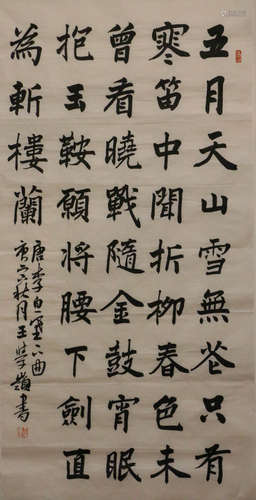 五月天山雪無花只有
寒笛中聞折柳春色未
曾看曉戰隨金鼓宵眠
抱玉鞍願將腰下劍直
為斬樓蘭
唐李白塞下曲
庚寅秋月王學嶺書